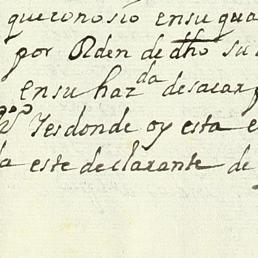 queronosio ensu qua
por Orden de dho su
ensu haz.da desacar p
Yes donde oy esta e
a este declarante de